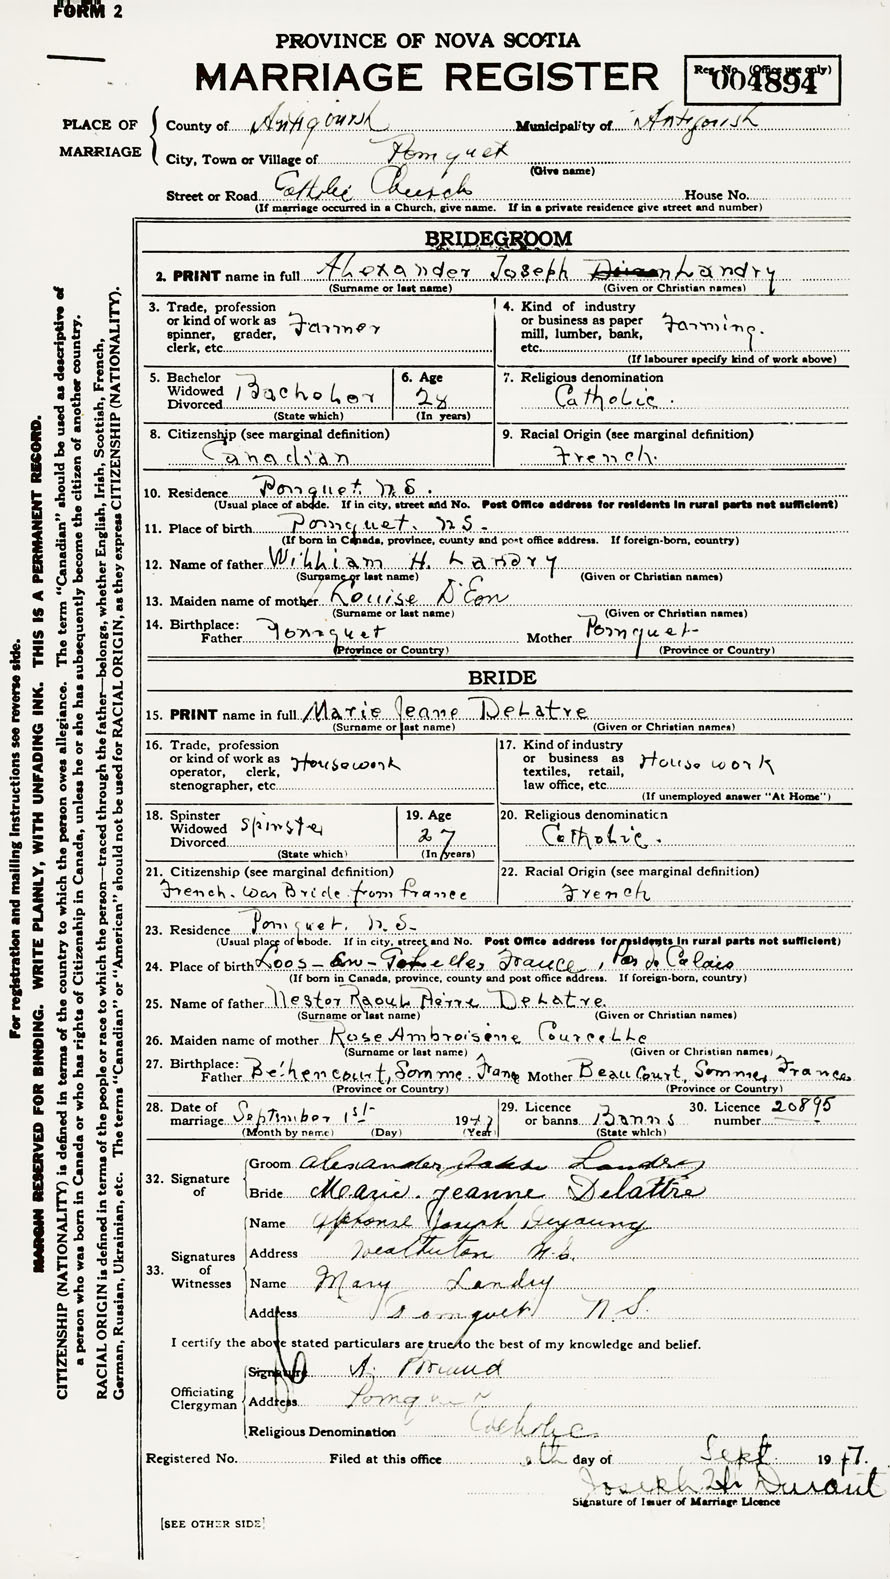 FORM 2
PROVINCE OF NOVA SCOTIA
MARRIAGE REGISTER
Reg. No. (Office use only)
004894
PLACE OF MARRIAGE
County of Antigonish Municipality of Antigonish
City, Town or Village of Pomquet
(Give name)
Street or Road Catholic Church House No.
(If marriage occurred in a Church, give name. If in a private residence give street and number)
BRIDEGROOM
2. PRINT name in full Alexander Joseph Landry
(Surname or last name) (Given or Christian names)
3. Trade, profession or kind of work as spinner, grader, clerk, etc. Farmer
4. Kind of industry or business as paper mill, lumber, bank, etc. Farming.
(If labourer specify kind of work above)
5. Bachelor Widowed Divorced Bachelor
(State which)
6. Age 28
(In years)
7. Religious denomination
Catholic.
8. Citizenship (see marginal definition)
Canadian
9. Racial Origin (see marginal definition)
French.
10. Residence Pomquet. N.S.
(Usual place of abode. If in city, street and No. Post Office address for residents in rural parts not sufficient)
11. Place of birth Pomquet. N.S.
(If born in Canada, province, county and post office address. If foreign-born, country)
12. Name of father William H. Landry
(Surname or last name) (Given or Christian names)
13. Maiden name of mother Louise D'Eon
(Surname or last name) (Given or Christian names)
14. Birthplace: Father Pomquet Mother Pomquet
(Province or Country) (Province or Country)
BRIDE
15. PRINT name in full Marie Jeane DeLatre
(Surname or last name) (Given or Christian names)
16. Trade, profession or kind of work as operator, clerk, stenographer, etc. Housework
17. Kind of industry or business as textiles, retail, law office, etc. House work
(If unemployed answer "At Home")
18. Spinster Widowed Divorced Spinster
(State which)
19. Age 27
(In years)
20. Religious denomination
Catholic.
21. Citizenship (see marginal definition)
French. War Bride from France
22. Racial Origin (see marginal definition)
French
23. Residence Pomquet. N.S.
(Usual place of abode. If in city, street and No. Post Office address for residents in rural parts not sufficient)
24. Place of birth Loos-En-Gohelle, France, Pas de Calais
(If born in Canada, province, county and post office address. If foreign-born, country)
25. Name of father Nestor Raoul Pierre DeLatre
(Surname or last name) (Given or Christian names)
26. Maiden name of mother Rose Ambroisene Courcelle
(Surname or last name) (Given or Christian names)
27. Birthplace: Father Béhencourt, Somme. France Mother BeauCourt, Somme, France
(Province or Country) (Province or Country)
28. Date of marriage September 1st 1947
(Month by name) (Day) (Year)
29. Licence or banns Banns
(State which)
30. Licence number 20895
32. Signature of
Groom Alexander Landry
Bride Marie. Jeanne Delattre
33. Signatures of Witnesses
Name Alphonse Joseph Deyoung
Address N.S.
Name Mary Landry
Address Pomquet N.S.
I certify the above stated particulars are true to the best of my knowledge and belief.
Officiating Clergyman
Signature A.
Address Pomquet
Religious Denomination Catholic
Registered No. Filed at this office day of Sept. 1947.
Joseph
Signature of Issuer of Marriage Licence
[SEE OTHER SIDE]
For registration and mailing instructions see reverse side.
MARGIN RESERVED FOR BINDING. WRITE PLAINLY, WITH UNFADING INK. THIS IS A PERMANENT RECORD.
CITIZENSHIP (NATIONALITY) is defined in terms of the country to which the person owes allegiance. The term "Canadian" should be used as descriptive of
a person who was born in Canada or who has rights of Citizenship in Canada, unless he or she has subsequently become the citizen of another country.
RACIAL ORIGIN is defined in terms of the people or race to which the person—traced through the father—belongs, whether English, Irish, Scottish, French,
German, Russian, Ukrainian, etc. The terms "Canadian" or "American" should not be used for RACIAL ORIGIN, as they express CITIZENSHIP (NATIONALITY).